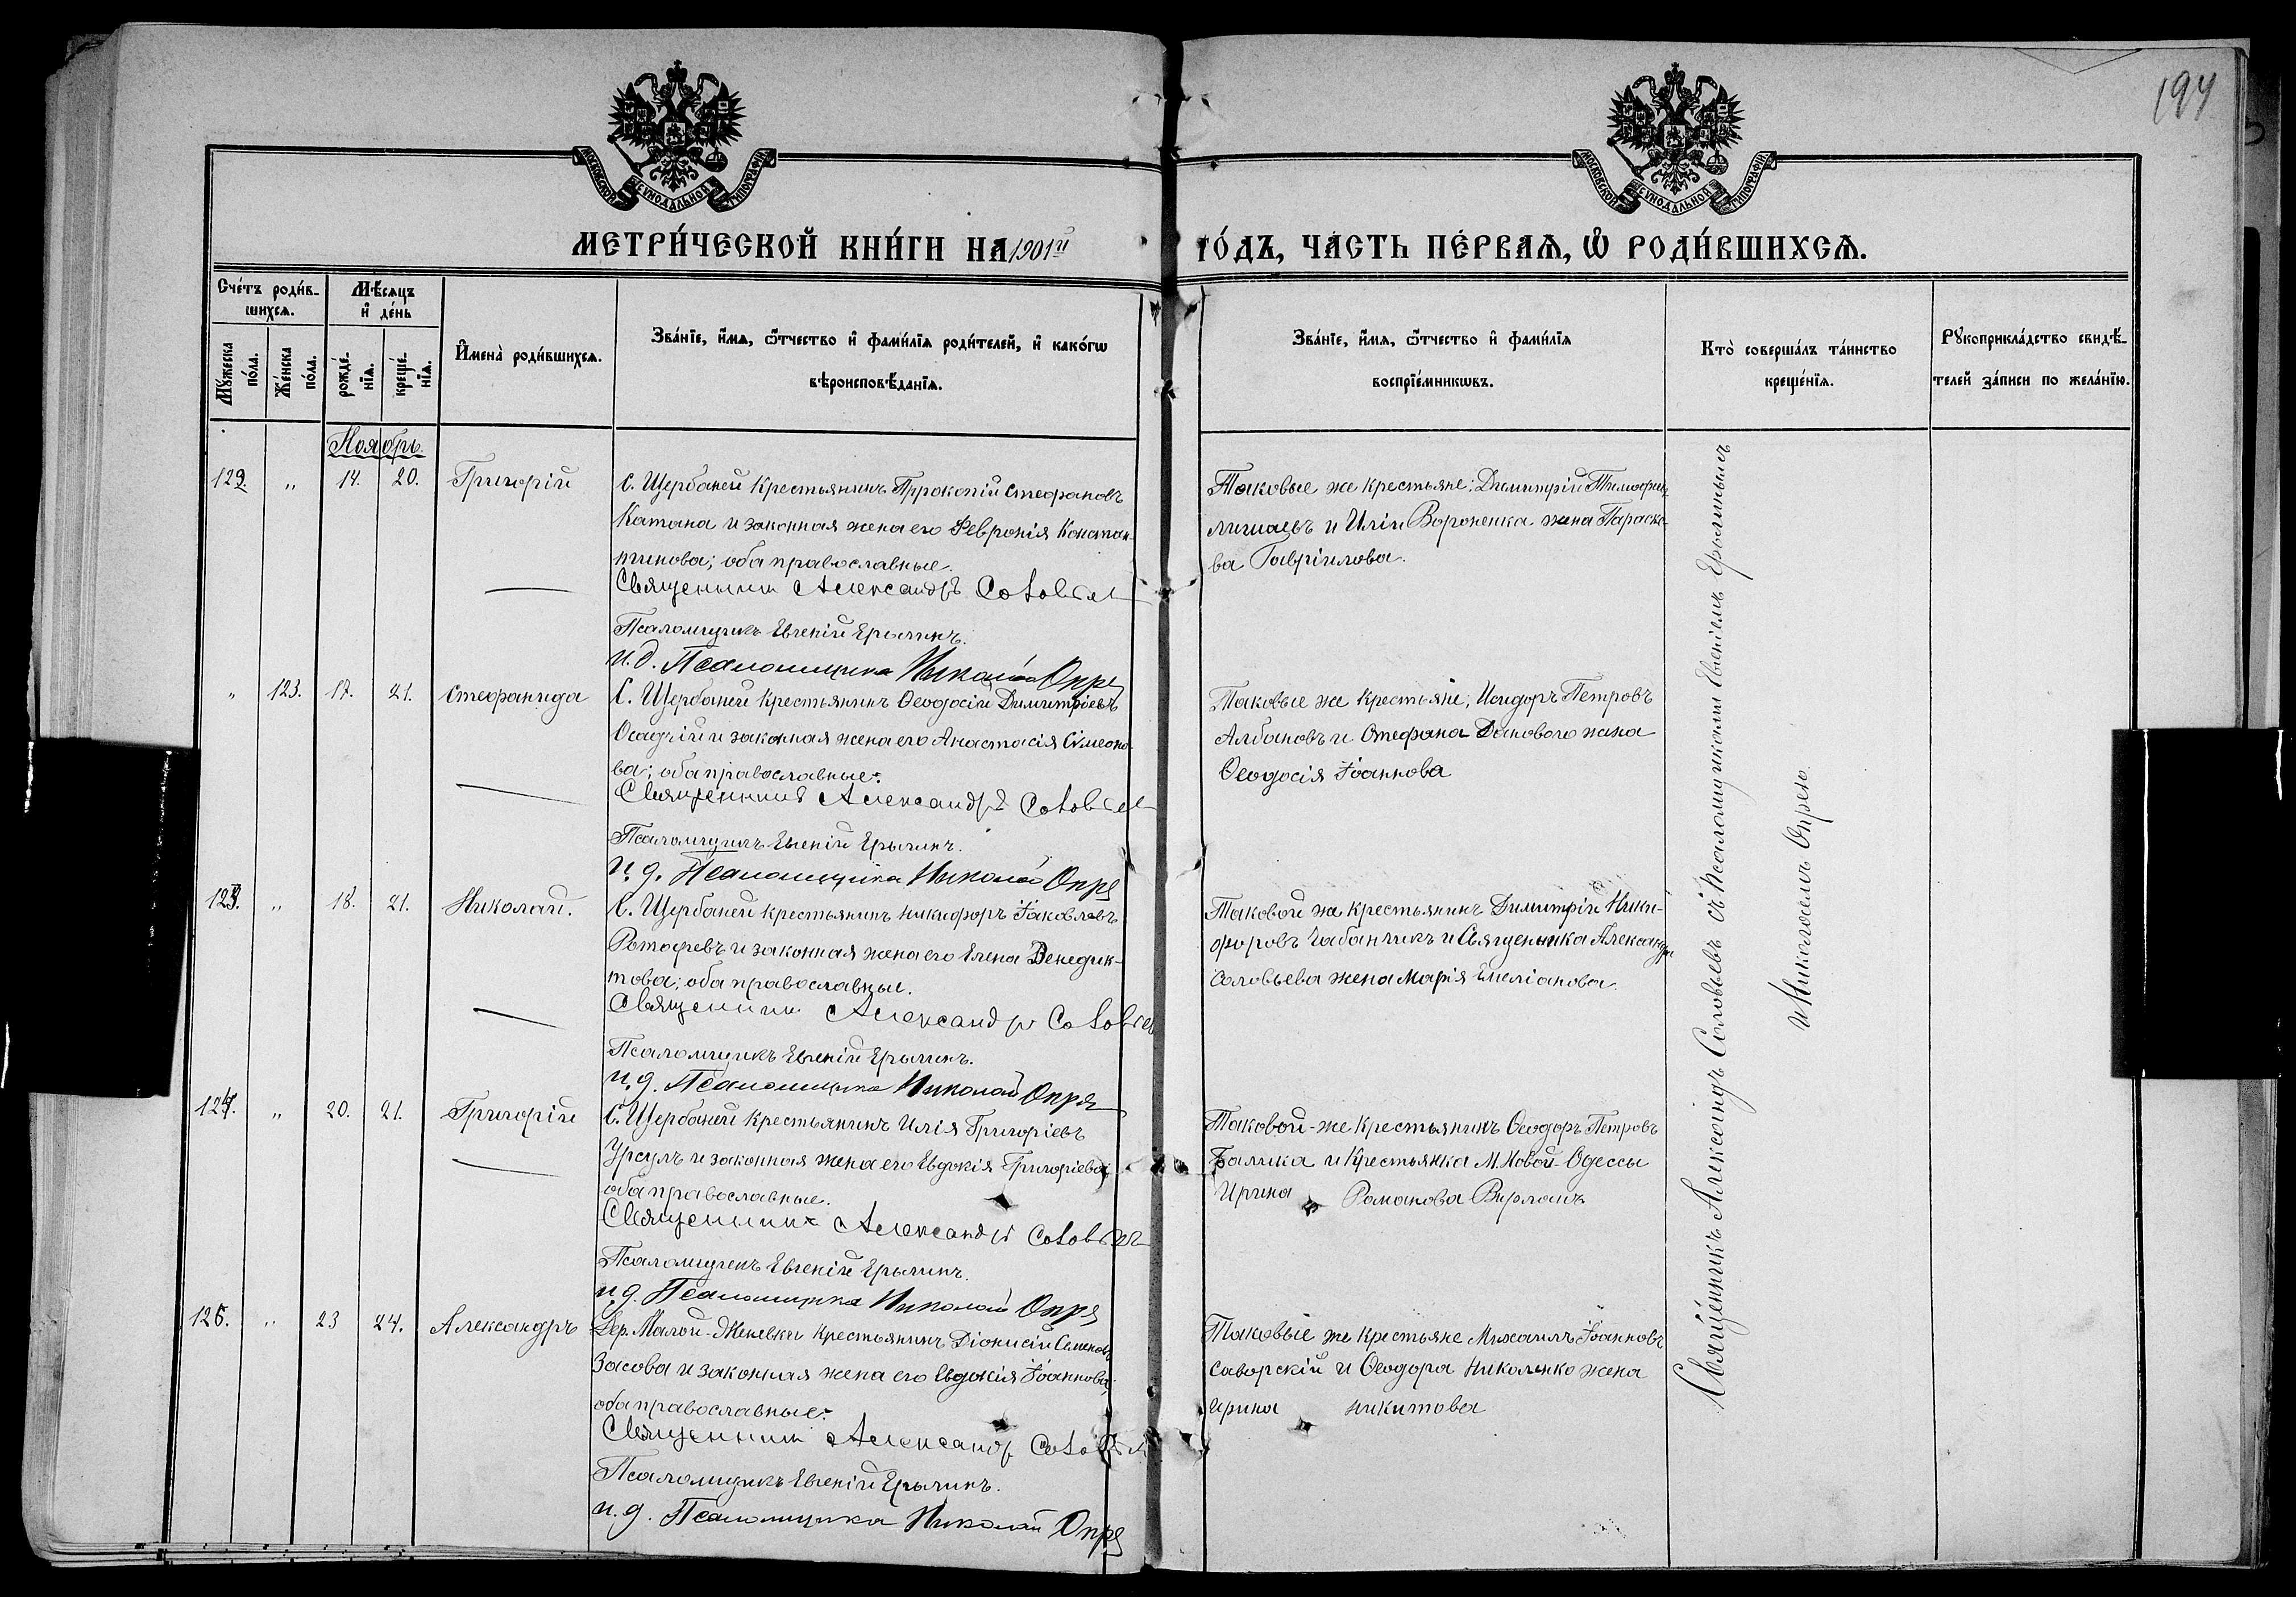 194
МОСКОВСКОЙ СѴНОДАЛЬНОЙ ТИПОГРАФІИ
МОСКОВСКОЙ СѴНОДАЛЬНОЙ ТИПОГРАФІИ
МЕТРИ́ЧЕСКОЙ КНИ́ГИ НА 1901й ГО́ДЪ, ЧА́СТЬ ПЕ́РВАѦ, Ѡ҆ РОДИ́ВШИХСѦ.
Сче́тъ роди́в-
шихсѧ.
Мꙋ́жеска по́ла.
Же́нска по́ла.
Мѣ́сѧцъ
и҆ де́нь
рожде́нїѧ.
креще́нїѧ.
И҆мена̀ роди́вшихсѧ.
Зва́нїе, и҆́мѧ, ѻ҆́тчество и҆ фами́лїѧ роди́телей, и҆ како́гѡ
вѣроисповѣ́данїѧ.
Зва́нїе, и҆́мѧ, ѻ҆́тчество и҆ фами́лїѧ
воспрїе́мникѡвъ.
Кто̀ соверша́лъ та́инство
креще́нїѧ.
Рꙋкоприкла́дство свидѣ́-
телей за́писи по жела́нїю.
Ноябрь.
129. „ 14. 20. Григорій
С. Щербаней крестьянинъ Прокопій Стефановъ
Катана и законная жена его Февронія Констан-
тинова; оба православные.
Священникъ Александръ Соловьевъ
Псаломщикъ Евгеній Ерылинъ.
и. д. Псаломщика Николай Опря
Таковые же крестьяне: Димитрій
и Иліи Вороненка жена Параске-
ва Гавріилова.
„ 123. 17. 21. Стефанида
С. Щербаней крестьянинъ Ѳеодосій Димитріевъ
Осадчій и законная жена его Анастасія Сімеоно-
ва; оба православные.
Священникъ Александръ Соловьевъ
Псаломщикъ Евгеній Ерылинъ.
и. д. Псаломщика Николай Опря
Таковые же крестьяне, Исидоръ Петровъ
Албановъ и Стефана Данового жена
Ѳеодосія Іоаннова
123. „ 18. 21. Николай.
С. Щербаней крестьянинъ Никифоръ Іаковлевъ
Ротаревъ и законная жена его Елена Венедик-
това; оба православные.
Священникъ Александръ Соловьевъ
Псаломщикъ Евгеній Ерылинъ.
и. д. Псаломщика Николай Опря
Таковой же крестьянинъ Димитрій Ники-
форовъ Чабанчикъ и Священника Александра
Соловьева жена Марія Емеліанова.
124. „ 20. 21. Григорій
С. Щербаней крестьянинъ Илія Григоріевъ
Урсулъ и законная жена его Евдокія Григоріева
оба православные.
Священникъ Александръ Соловьевъ
Псаломщикъ Евгеній Ерылинъ.
и. д. Псаломщика Николай Опря
Таковой-же крестьянинъ Ѳеодоръ Петровъ
Балика и крестьянка М. Новой-Одессы
Ирина Романова Вирланъ
125. „ 23 24. Александръ
Дер. Малой-Женевки крестьянинъ Діонисій Семеновъ
Засова и законная жена его Евдокія Іоаннова;
оба православные.
Священникъ Александръ Соловьевъ
Псаломщикъ Евгеній Ерылинъ.
и. д. Псаломщика Николай Опря
Таковые же крестьяне Михаилъ Іоанновъ
Саворскій и Ѳеодора Николенко жена
Ирина Никитова
Священникъ Александръ Соловьевъ съ Псаломщиками Евгеніемъ Ерылинымъ
и Николаемъ Опрею.